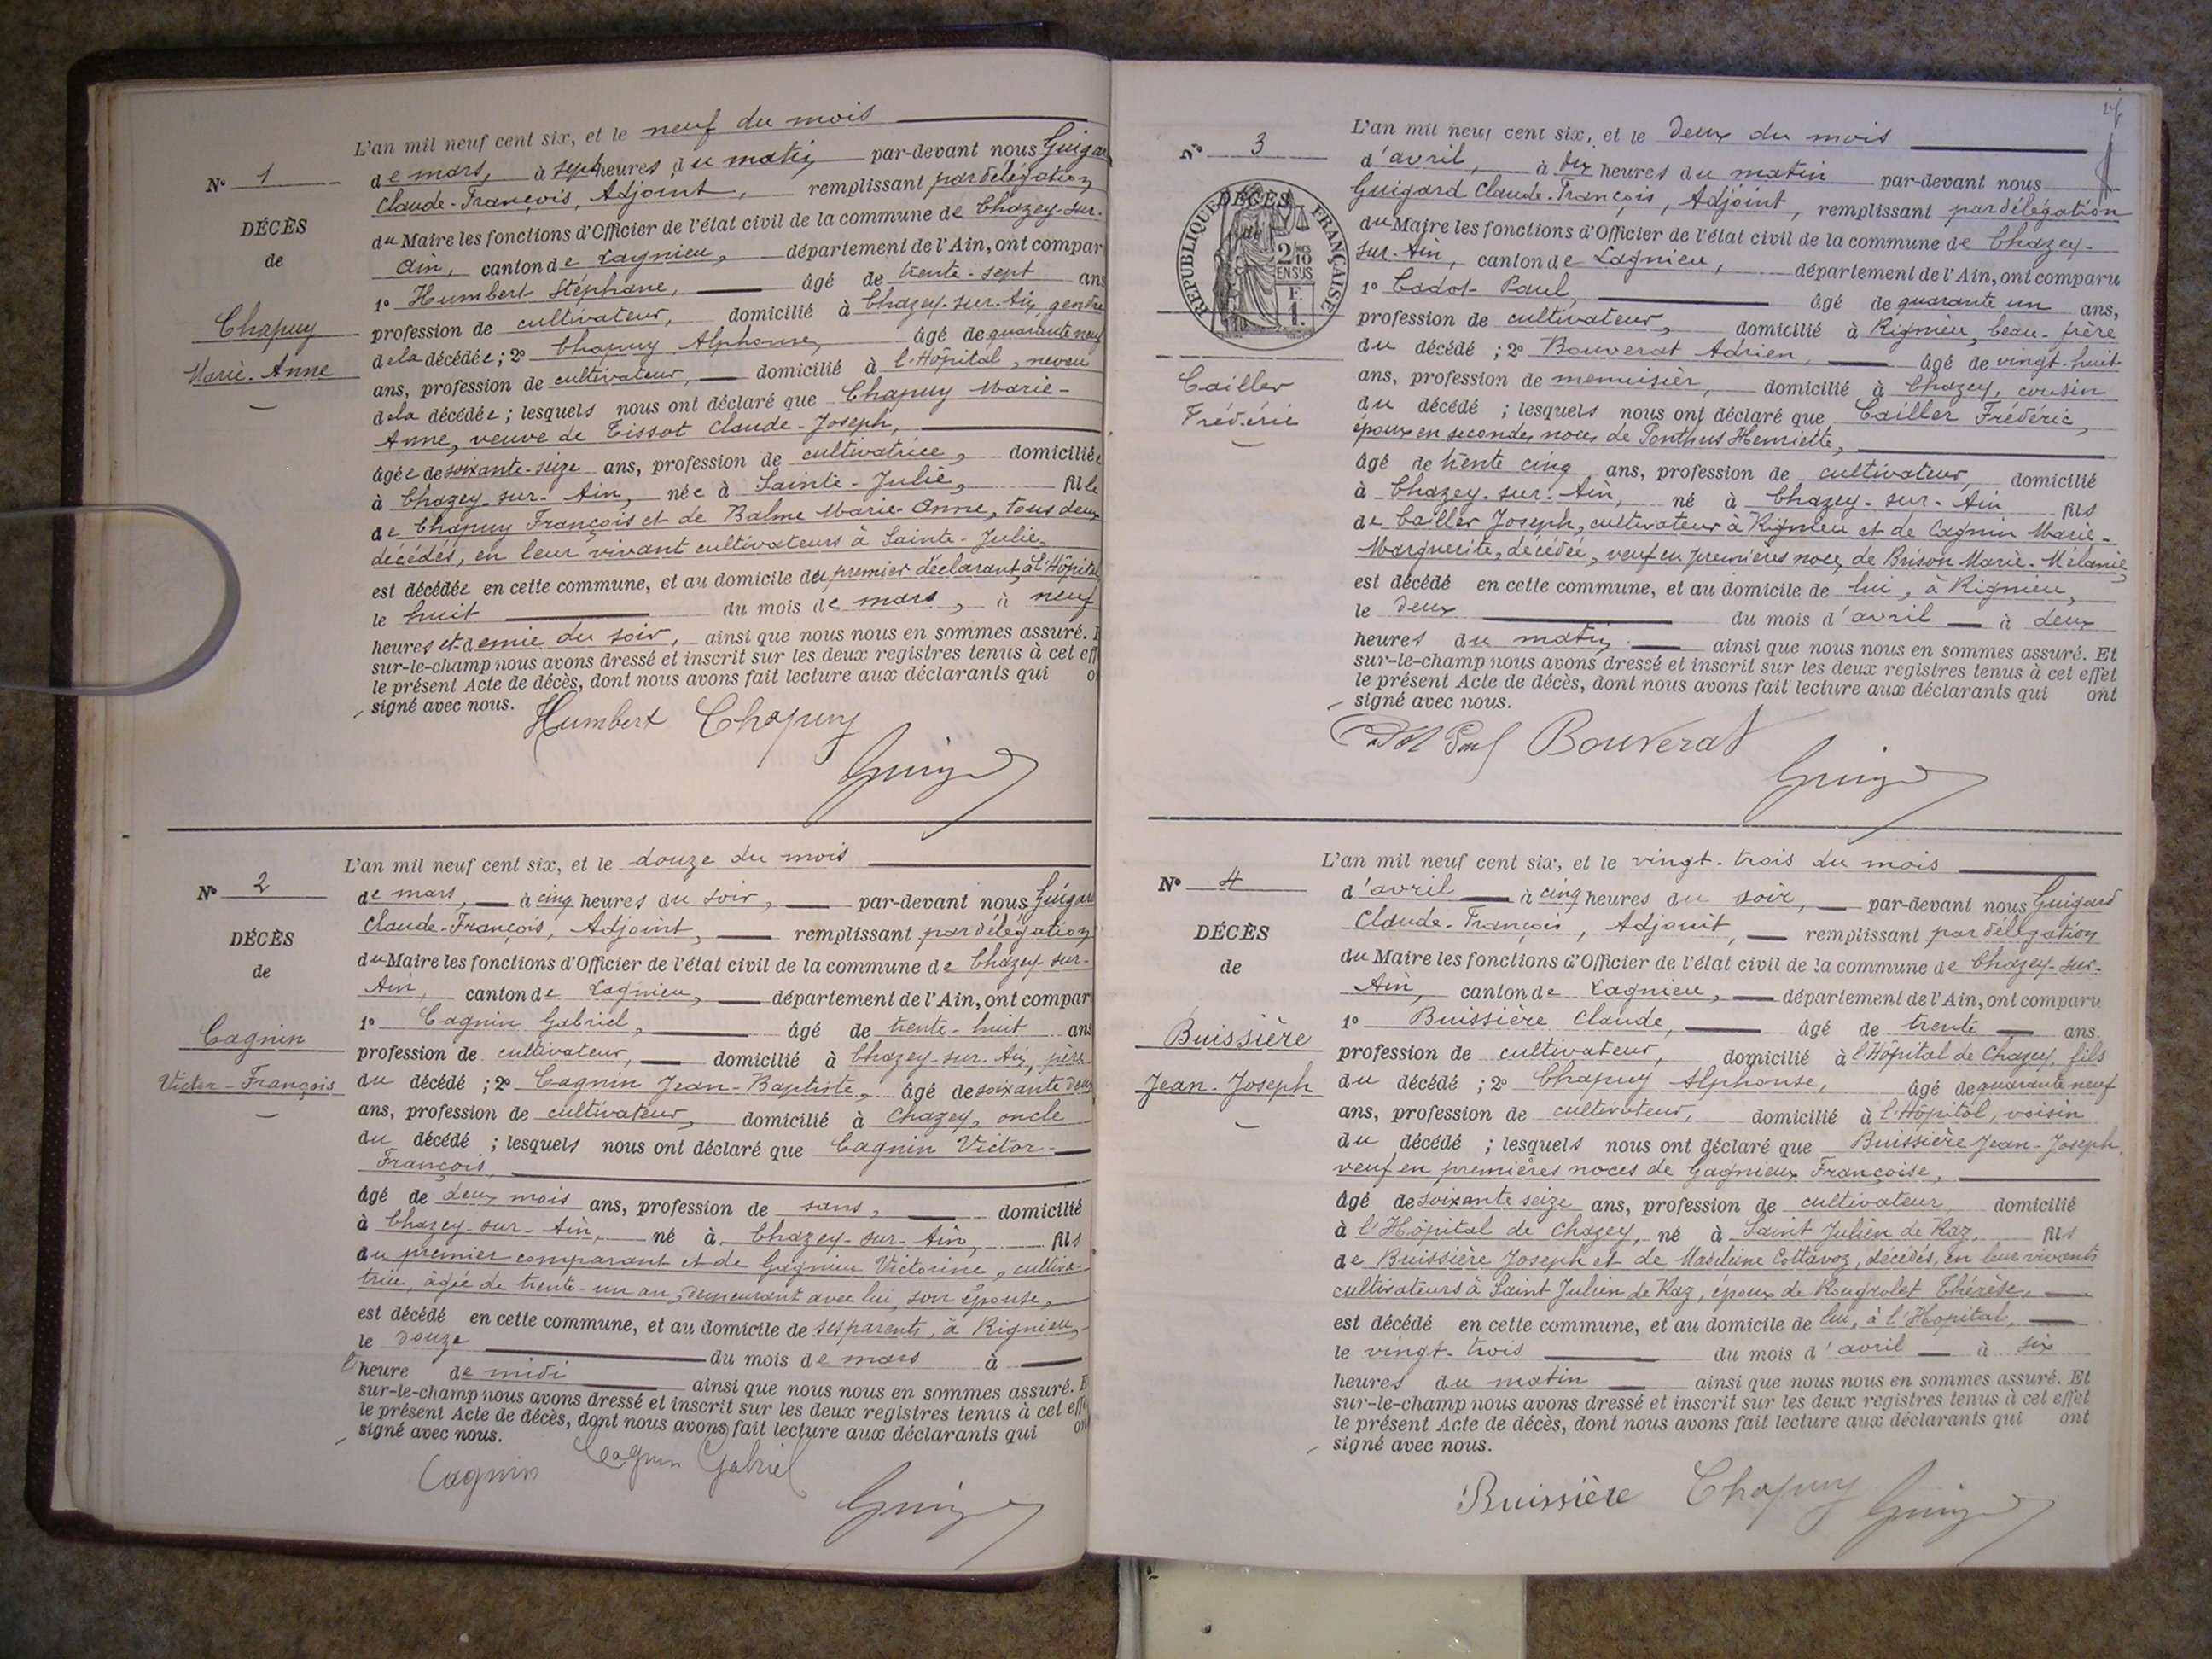 L'an mil neuf cent six, et le neuf du mois
de mars, à sept heures du matin par-devant nous Guigar
Claude-François, Adjoint, remplissant par délégation
du Maire les fonctions d'Officier de l'état civil de la commune de Chazey-sur-
Ain, canton de Lagnieu, département de l'Ain, ont compar
1º Humbert Stéphane, âgé de trente-sept ans
profession de cultivateur, domicilié à Chazey-sur-Ain, gendre
de la décédée; 2º Chapuy Alphonse, âgé de quarante neuf
ans, profession de cultivateur, domicilié à l'Hôpital, neveu
de la décédée; lesquels nous ont déclaré que Chapuy Marie-
Anne, veuve de Tissot Claude-Joseph,
âgée de soixante-seize ans, profession de cultivatrice, domiciliée
à Chazey-sur-Ain, née à Sainte-Julie, fille
de Chapuy François et de Balme Marie-Anne, tous deux
décédés, en leur vivant cultivateurs à Sainte-Julie,
est décédée en cette commune, et au domicile du premier déclarant, à l'Hôpital
le huit du mois de mars, à neuf
heures et demie du soir, ainsi que nous nous en sommes assuré. E
sur-le-champ nous avons dressé et inscrit sur les deux registres tenus à cet eff
le présent Acte de décès, dont nous avons fait lecture aux déclarants qui o
signé avec nous.
Humbert Chapuy
Guigard
Nº 1
DÉCÈS
de
Chapuy
Marie-Anne
L'an mil neuf cent six, et le douze du mois
de mars, à cinq heures du soir, par-devant nous Guigard
Claude-François, Adjoint, remplissant par délégation
du Maire les fonctions d'Officier de l'état civil de la commune de Chazey-sur-
Ain, canton de Lagnieu, département de l'Ain, ont compar
1º Cagnin Gabriel, âgé de trente-huit ans
profession de cultivateur, domicilié à Chazey-sur-Ain, père
du décédé; 2º Cagnin Jean-Baptiste, âgé de soixante deux
ans, profession de cultivateur, domicilié à Chazey, oncle
du décédé; lesquels nous ont déclaré que Cagnin Victor-
François,
âgé de deux mois ans, profession de sans, domicilié
à Chazey-sur-Ain, né à Chazey-sur-Ain, fils
du premier comparant et de Gagnieu Victorine, cultiva-
trice, âgée de trente-un an, demeurant avec lui, son épouse,
est décédé en cette commune, et au domicile de ses parents, à Rignieu,
le douze du mois de mars à
l'heure de midi ainsi que nous nous en sommes assuré. E
sur-le-champ nous avons dressé et inscrit sur les deux registres tenus à cet effe
le présent Acte de décès, dont nous avons fait lecture aux déclarants qui on
signé avec nous.
Cagnin Cagnin Gabriel
Guigard
Nº 2
DÉCÈS
de
Cagnin
Victor-François
L'an mil neuf cent six, et le deux du mois
d'avril, à dix heures du matin par-devant nous
Guigard Claude-François, Adjoint, remplissant par délégation
du Maire les fonctions d'Officier de l'état civil de la commune de Chazey-
sur-Ain, canton de Lagnieu, département de l'Ain, ont comparu
1º Cadot Paul, âgé de quarante un ans,
profession de cultivateur, domicilié à Rignieu, beau-frère
du décédé; 2º Bouverat Adrien, âgé de vingt-huit
ans, profession de menuisier, domicilié à Chazey, cousin
du décédé; lesquels nous ont déclaré que Cailler Frédéric,
époux en secondes noces de Ponthus Henriette,
âgé de trente cinq ans, profession de cultivateur, domicilié
à Chazey-sur-Ain, né à Chazey-sur-Ain fils
de Cailler Joseph, cultivateur à Rignieu et de Cagnin Marie-
Marguerite, décédée, veuf en premières noces de Brison Marie-Mélanie,
est décédé en cette commune, et au domicile de lui, à Rignieu,
le deux du mois d'avril à deux
heures du matin ainsi que nous nous en sommes assuré. Et
sur-le-champ nous avons dressé et inscrit sur les deux registres tenus à cet effet
le présent Acte de décès, dont nous avons fait lecture aux déclarants qui ont
signé avec nous.
Paul Bouverat
Guigard
Nº 3
DÉCÈS
de
RÉPUBLIQUE FRANÇAISE
2/10 EN SUS
F. 1.
Cailler
Frédéric
L'an mil neuf cent six, et le vingt-trois du mois
d'avril à cinq heures du soir, par-devant nous Guigard
Claude-François, Adjoint, remplissant par délégation
du Maire les fonctions d'Officier de l'état civil de la commune de Chazey-sur-
Ain, canton de Lagnieu, département de l'Ain, ont comparu
1º Buissière Claude, âgé de trente ans.
profession de cultivateur, domicilié à l'Hôpital de Chazey, fils
du décédé; 2º Chapuy Alphonse, âgé de quarante neuf
ans, profession de cultivateur, domicilié à l'Hôpital, voisin
du décédé; lesquels nous ont déclaré que Buissière Jean-Joseph,
veuf en premières noces de Gagnieux Françoise,
âgé de soixante seize ans, profession de cultivateur, domicilié
à l'Hôpital de Chazey, né à Saint Julien de Raz, fils
de Buissière Joseph et de Madeleine Cottavoz, décédés, en leur vivants
cultivateurs à Saint Julien de Raz, époux de Rougrolet Thérèse,
est décédé en cette commune, et au domicile de lui, à l'Hopital,
le vingt-trois du mois d'avril à six
heures du matin ainsi que nous nous en sommes assuré. Et
sur-le-champ nous avons dressé et inscrit sur les deux registres tenus à cet effet
le présent Acte de décès, dont nous avons fait lecture aux déclarants qui ont
signé avec nous.
Buissière Chapuy Guigard
Nº 4
DÉCÈS
de
Buissière
Jean-Joseph